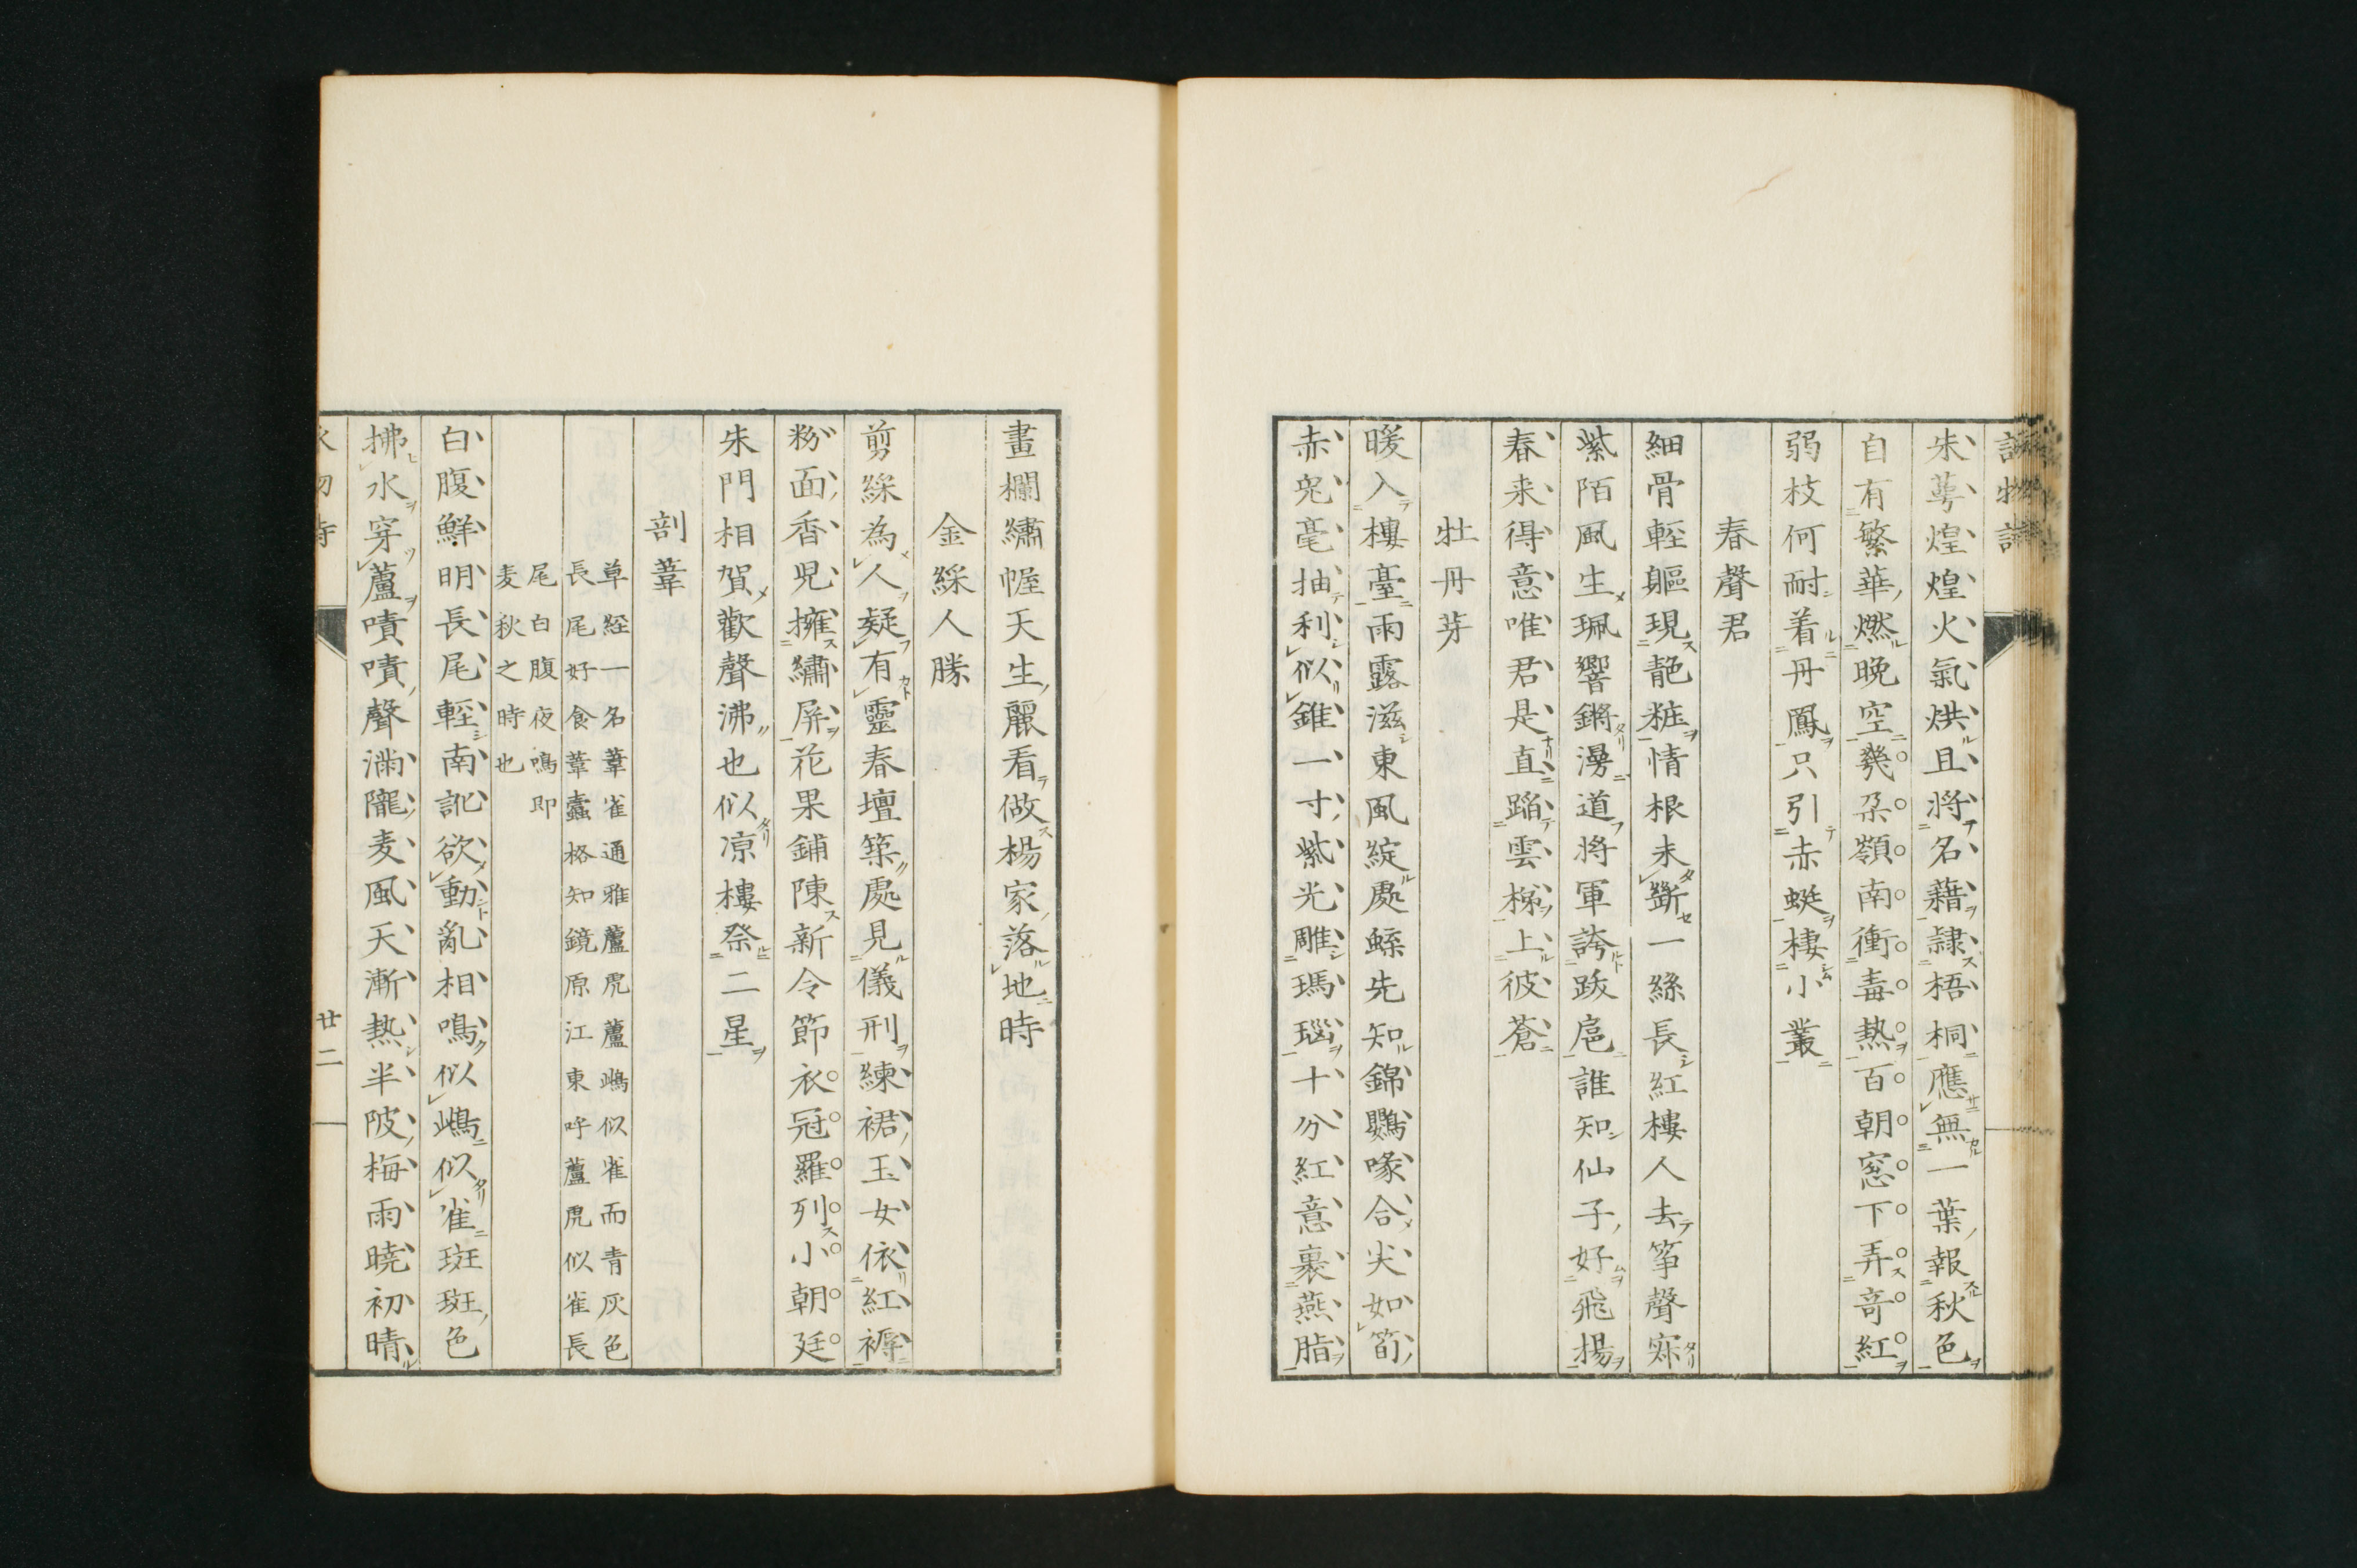 詠物詩
朱萼煌煌火氣烘且將名藉隷梧桐應無一葉報秋色
自有繁華燃晚空幾朶嶺南衝毒熱百朝窓下弄奇紅
弱枝何耐着丹鳳只引赤蜓棲小叢
春聲君
細骨輕軀現靘粧情根未斷一絲長紅樓人去筝聲寂
紫陌風生珮響鏘漫道將軍誇跋扈誰知仙子好飛揚
春来得意唯君是直蹈雲梯上彼蒼
牡丹芽
暖入樓臺雨露滋東風綻處蘇先知錦鸚喙合尖如筍
赤兔毫抽利似錐一寸紫光雕瑪瑙十分紅意裹燕脂
畫欄繡幄天生麗看做楊家落地時
金綵人勝
剪綵為人疑有靈春壇築處見儀刑練裙玉女依紅褥
粉面香児擁繡屏花果鋪陳新令節衣冠羅列小朝廷
朱門相賀歡聲沸也似凉樓祭二星
剖葦
草経一名葦雀通雅蘆虎蘆鴟似雀而青灰色
長尾好食葦蠹格知鏡原江東呼蘆虎似雀長
尾白腹夜鳴即
麦秋之時也
白腹鮮明長尾輕南訛欲動亂相鳴似鴟似雀斑斑色
拂水穿蘆嘖嘖聲満隴麦風天漸熱半陂梅雨曉初晴
廿二